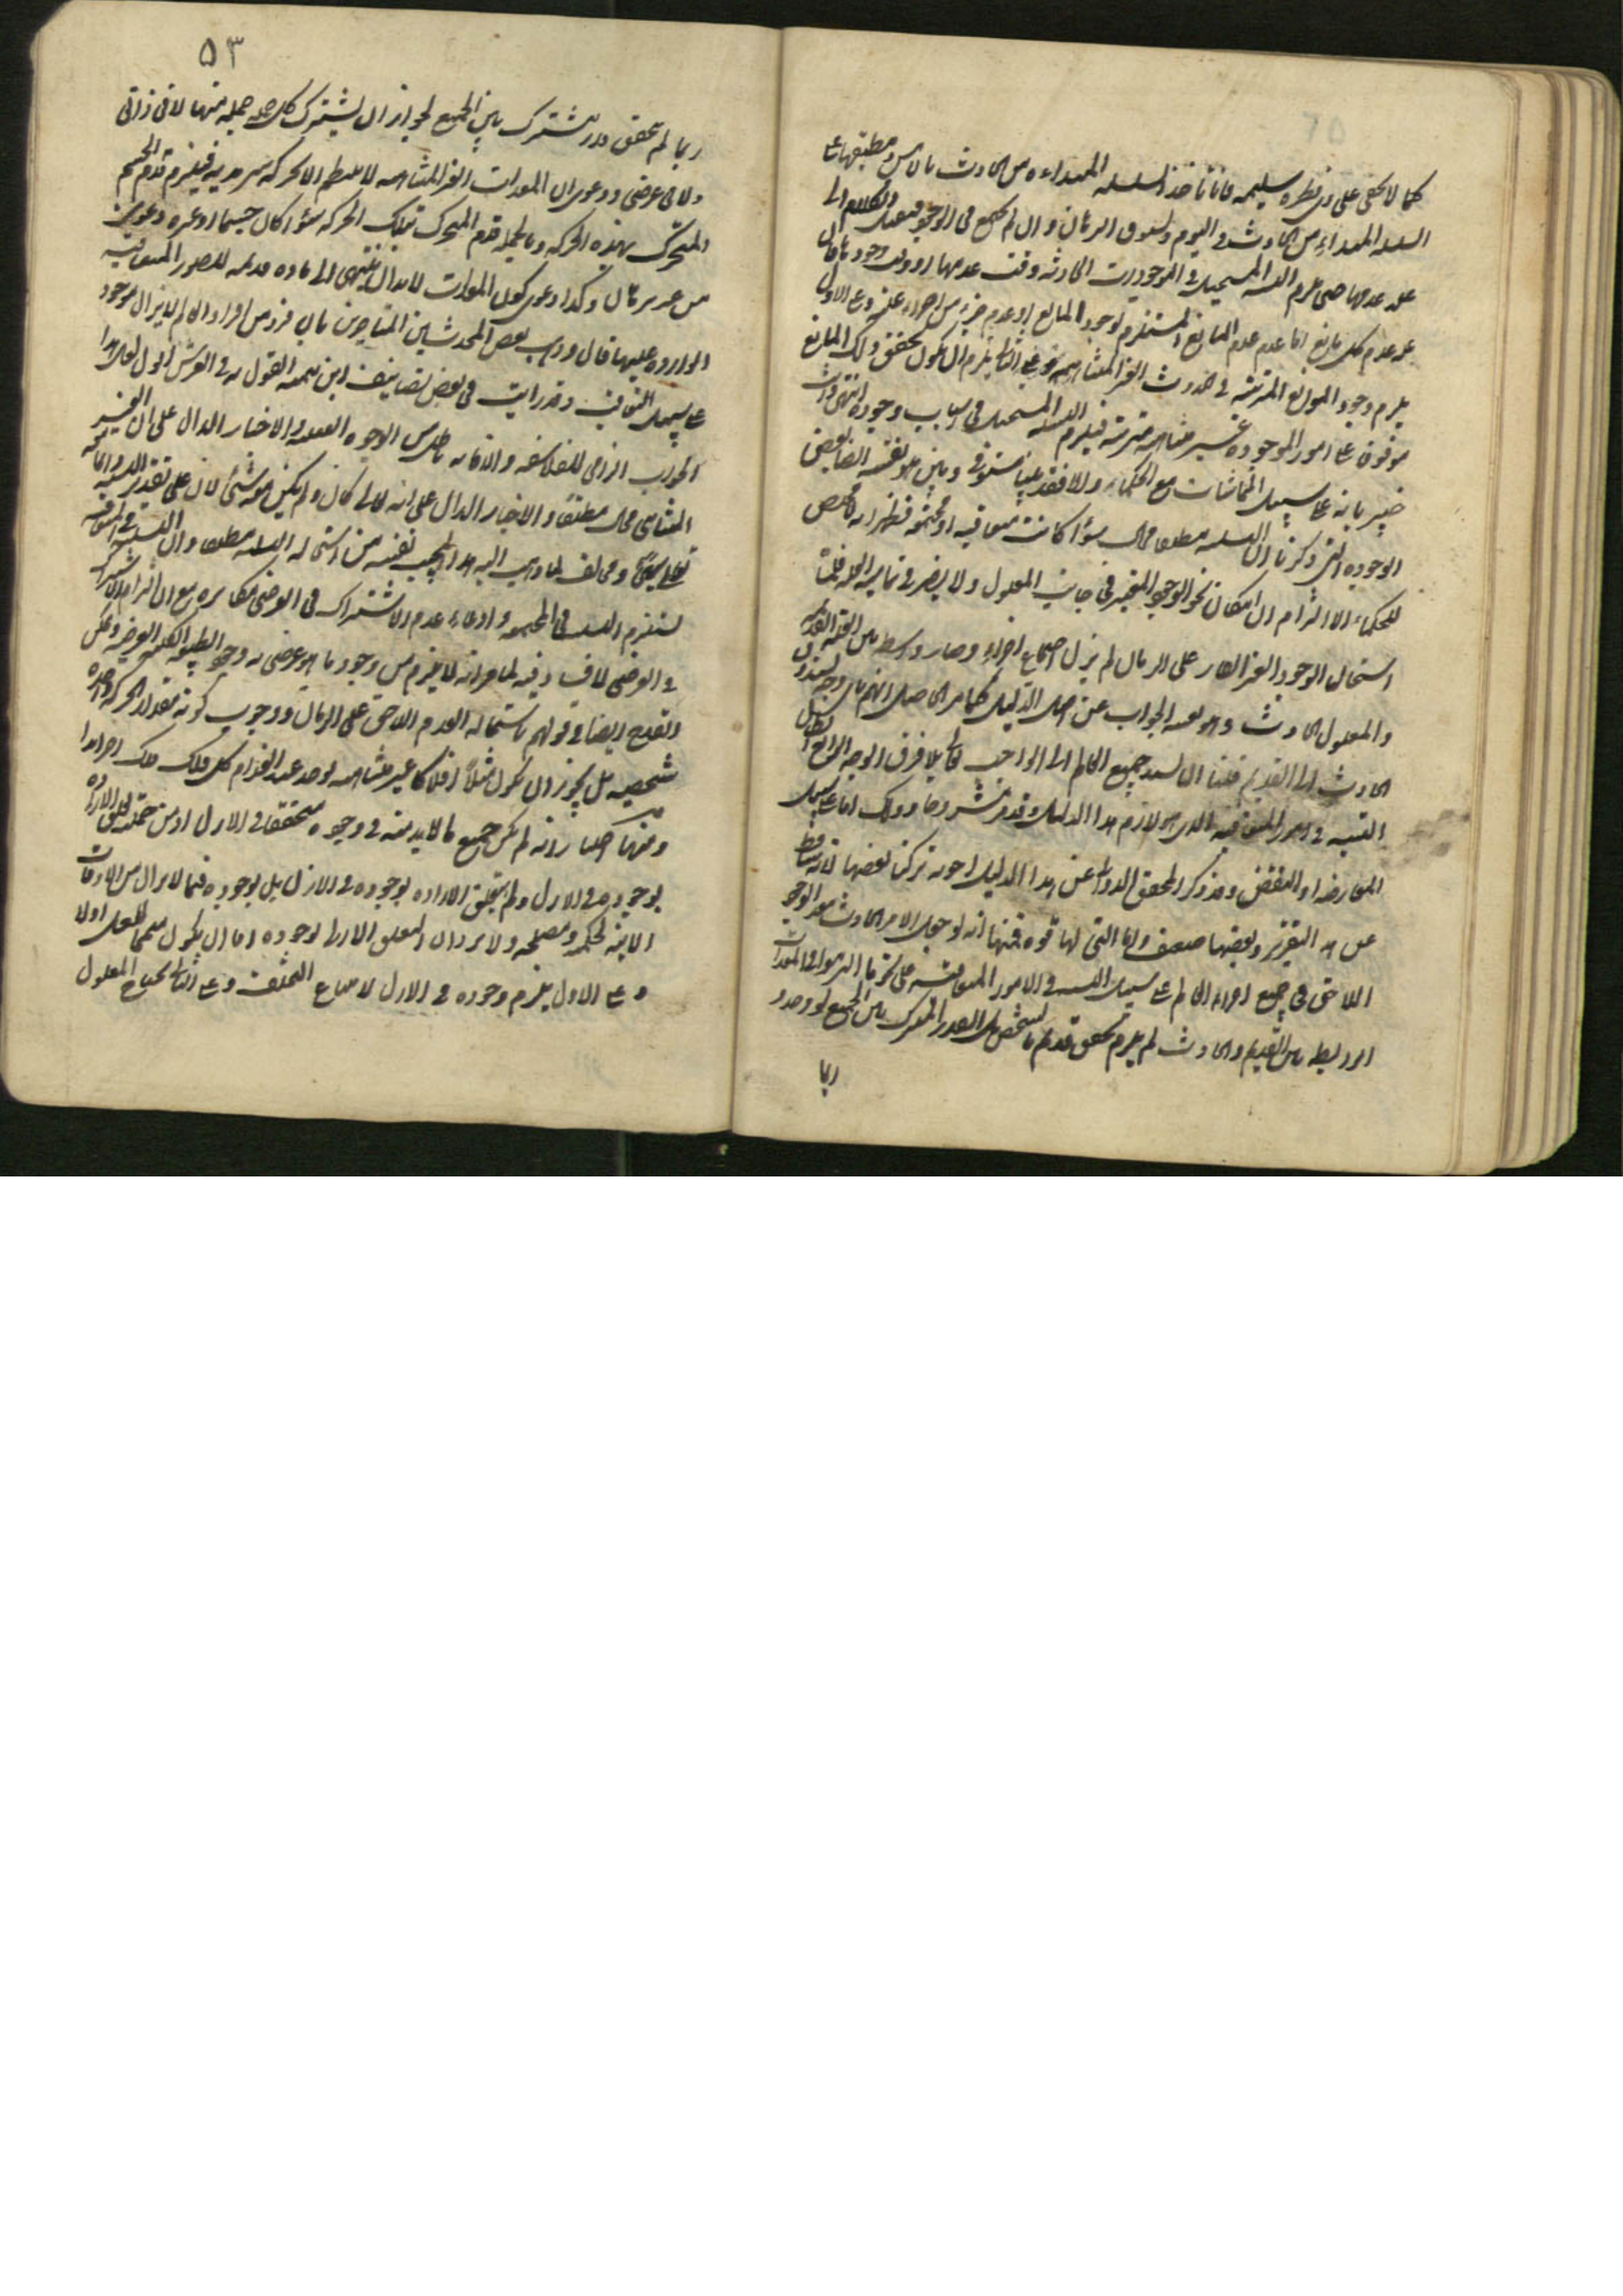 كما لا يخفى على ذي فطره سليمه فانا نأخذ السلسله المبتداءه من الحادث بالامس و نطبقها على
السلسله المبتداءه من الحادث في اليوم الزمان وان لم تجتمع في الوجود الكلام الى
علة عدمها حتى يلزم التسلسل المستحيل في الموجودات الحادثه وقت عدمها وجود
علة عدم كل مانع اما عدم عدم المانع المستلزم لوجود المانع او عدم جزء من اجزاء علته وعلى الاول
يلزم وجود الموانع المترتبة في الحدوث الغير المتناهيه وعلى الثاني يلزم ان يكون تحقق ذلك المانع
موقوفا على امور الموجوده غير متناهيه مترتبة فيلزم التسلسل المستحيل في اسباب وجوده انتهى وانت
خبير بانه على سبيل المماشات مع الحكماء والا فقد بينا وبين هو نفسه ايضا بعض
الوجوه التي ذكرنا ان التسلسل مطلقا محال سواء كانت متعاقبه او مجتمعه فظهر انه لا مخلص
للحكماء الا التزام ان امكان نحو الوجود المتغير في جانب المعلول ولا يضر في تماميه العله قلت
استحال الوجود الغير القار على الزمان لم يزل اجتماع اجزاءه وصار واسطه بين العله القديمه
والمعلول الحادث وهو بعينه الجواب عن اصل الدليل كما مر الحاصل انهم
الحادث الى القديم قلنا ان يستند جميع العالم الى الواجب تعالى بلا فرق الوجه الرابع
التسلسل في امور المتعاقبه الذي هو لازم هذا الدليل وقد مر مشروحا وذلك اما على سبيل
المعارضه او النقض وقد ذكر المحقق الدواني عن هذا الدليل اجوبه تركنا بعضها
عن هذا التقرير وبعضها ضعيف واما التي لها قوه فمنها انه لو حصل الامر الحادث
اللاحق في جميع اجزاء العالم على سبيل التسلسل في الامور المتعاقبه على نحو ما التزموا في المعدات
الروابط بين القديم والحادث لم يلزم تحقق قديم بالشخص بل القدر المشترك بين الجميع لو وجد و
ربما
٥٣
ربما لم يتحقق قدر مشترك بين الجميع لجواز ان يشترك كل جمله جمله منها لا في ذاتي
ولا في عرضي ودعوى ان المعدات الغير المتناهيه لا ينتظم الا بحركه سرمديه فيلزم قدم الجسم
المتحرك بهذه الحركه وبالجمله قدم المتحرك بتلك الحركه سواء كان جسما او غيره دعوى
من غير برهان وكذا دعوى كون المعدات لا بد ان تنتهي الى ماده قديمه للصور المتعاقبه
الوارده عليها قال وذهب بعض المحدثين المتاخرين بان فرد من افراد العالم لا يزال موجود
على سبيل التعاقب وقد رايت في بعض تصانيف ابن تيميه القول به في العرش اقول لعل هذا
الجواب الزامي للفلاسفه والا فانه باطل من الوجوه العقليه والاخبار الدال على ان الغير
المتناهي محال مطلقا والاخبار الدال على انه تعالى كان ولم يكن معه شئ لان على تقدير التسلسل
ومخالف لما ذهب اليه هذا المجيب نفسه من استحاله التسلسل مطلقا وان التسلسل في المتعاقبه
يستلزم التسلسل في المجتمعه وادعاء عدم الاشتراك في العرضي مكابره مع ان التزام الاشتراك
في العرضي لا فساد فيه لما مر انه لا يلزم من وجود ما هو عرضي له وجود الطبيعه الكليه العرضيه ويمكن
القدح ايضا في قولهم باستحاله العدم اللاحق على الزمان ووجوب كونه مقدارا لحركه واحده
شخصيه بل يجوز ان يكون مثلا افلاكا غير متناهيه يوجد عند انعدام كل فلك فلك اخر
ومنها اختيار انه لم يكن جميع ما لا بد منه في وجوده متحققا في الازل اذ من جمله تعلق الاراده
بوجوده في الازل ولم يتعلق الاراده بوجوده في الازل بل بوجوده فيما لا يزال من الاوقات
الاتيه لحكمه ومصلحه ولا يرد ان التعلق الازلي لوجوده اما ان يكون متمما للعله او لا
وعلى الاول يلزم وجوده في الازل لامتناع التخلف وعلى الثاني يحتاج المعلول